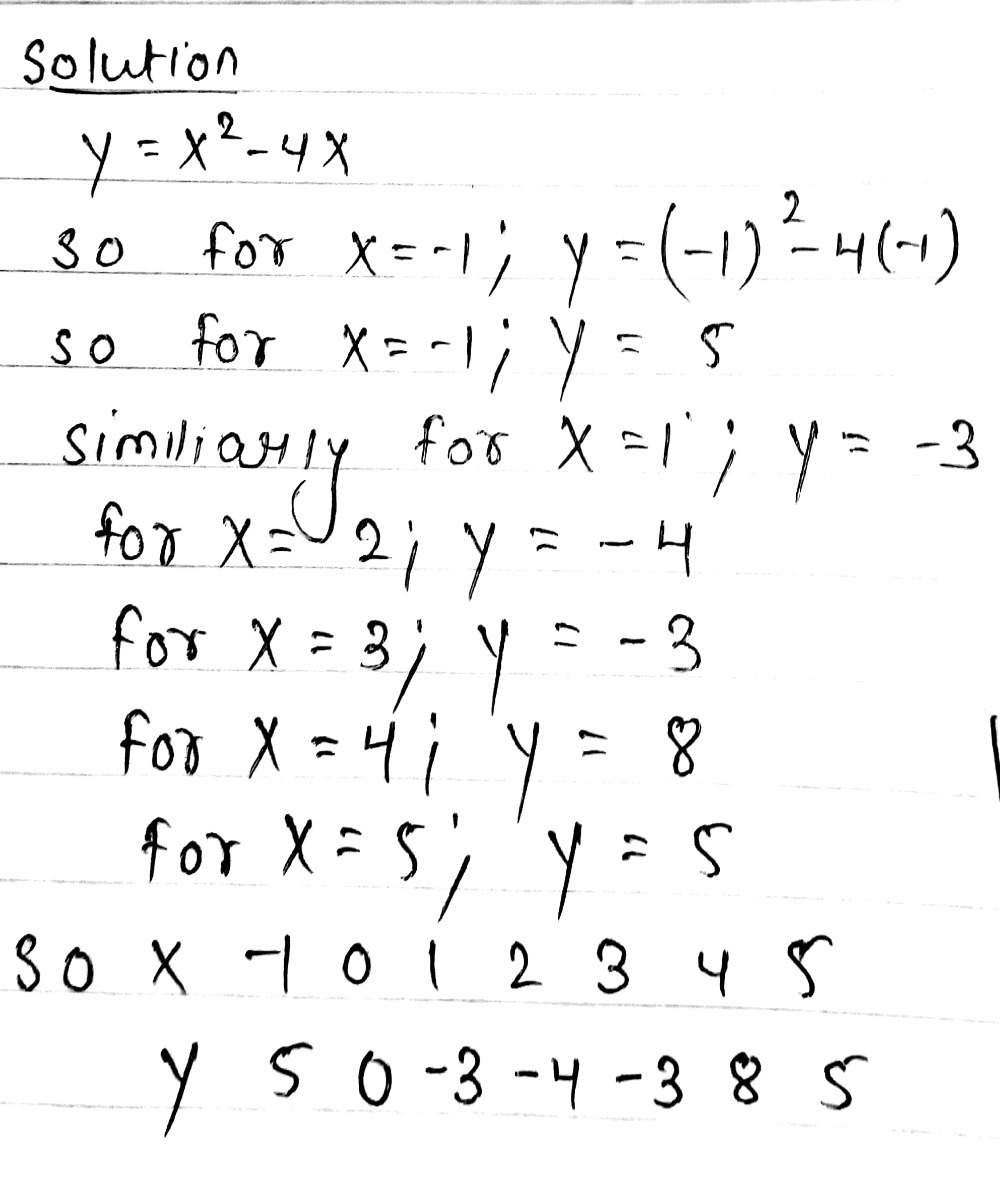 Solution
y = x² - 4x
so for x = -1; y = (-1)² - 4(-1)
so for x = -1; y = 5
similiarly for x = 1; y = -3
for x = 2; y = -4
for x = 3; y = -3
for x = 4; y = 8
for x = 5; y = 5
so x -1 0 1 2 3 4 5
y 5 0 -3 -4 -3 8 5